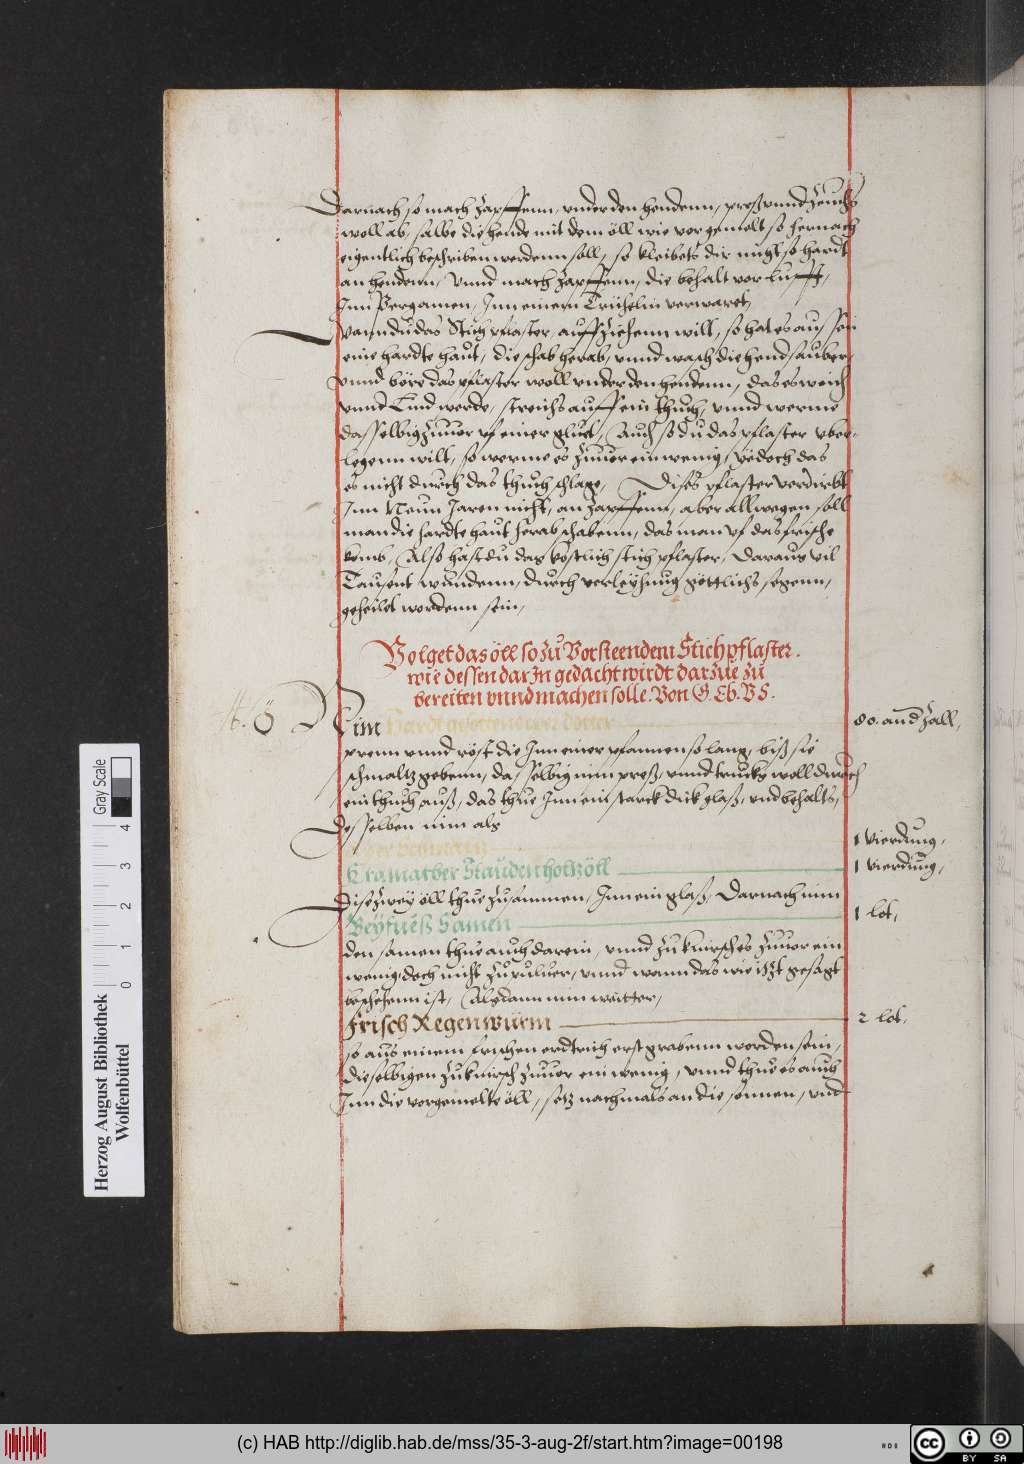 Darnach so mach Zapffenn, vnder den hendenn, preß vnnd Zeuchs
woll ab, salbe die hende mit dem öll wie vorgemelt so hernach
eigentlich beschriben werdenn soll, so kleibets dir nicht so hardt
an hendenn, Vnnd mach Zapffenn, die behalt vor lufft,
Inn Pergamen, Inn einem Trühelin verwaret,
Wann du das Stich pflaster auffZiehenn will, so hat es aussen
eine hardte haut, die schab herab, vnnd wasch die hend sauber,
vnnd böre das pflaster woll vnder den hendenn, das es weich
vnnd Lind werde, streichs auff ein thuch, vnnd werme
dasselbig Zuuor vf einer gluet, Auch so du das pflaster vber-
legenn wilt, so werme es Zuuor ein wenig, yedoch das
es nicht durch das thuch schlage, Dises pflaster verdirbt
Inn Neun Jaren nicht, an Zapffenn, aber allwegen soll
man die hardte haut herab schabenn, das man vf das frische
komb, Also hastu das köstlich stich pflaster, Daraus vil
Tausent wundenn, durch verleyhung göttlichs segenn,
geheilet wordenn sein,
Volget das öll so zu Vorsteendem Stichpflaster.
wie dessen darJn gedacht wirdt darzue zu
bereiten vnnd machen solle. Von G. Eb. V S.
Nim Hardt gesottene ayer dotter 80. and Zall,
prenn vnnd röst die Inn einer pfannen so lang, biß sie
schmaltz gebenn, dasselbig nim preß, vnnd truckhs woll durch
ein thuch auß, das thue Inn ein starck dick glaß, vnd behalts,
Desselben nim als
1 Vierdung,
Cramatber Stauden holtzöll 1 Vierdung,
Dise Zwey öll thue Zusammen, Inn ein glaß, Darnach nim
Beyfueß Samen 1 lot,
den samen thue auch darein, vnnd Zuknirsch es Zuuor ein
wenig, doch nicht Zu puluer, vnnd wann das wie itzt gesagt
beschehenn ist, Alsdann nim weitter,
Frisch Regenwürm 2 lot,
so aus einem frischen erdtrich erst grabenn worden sein,
dieselbigen Zuknirsch Zuuor ein wenig, vnnd thue es auch
Inn die vorgemelte öll, setz nachmals an die sonnen, vnd
Herzog August Bibliothek
Wolfenbüttel
0 1 2 3 4
Gray Scale
(c) HAB http://diglib.hab.de/mss/35-3-aug-2f/start.htm?image=00198
cc BY SA